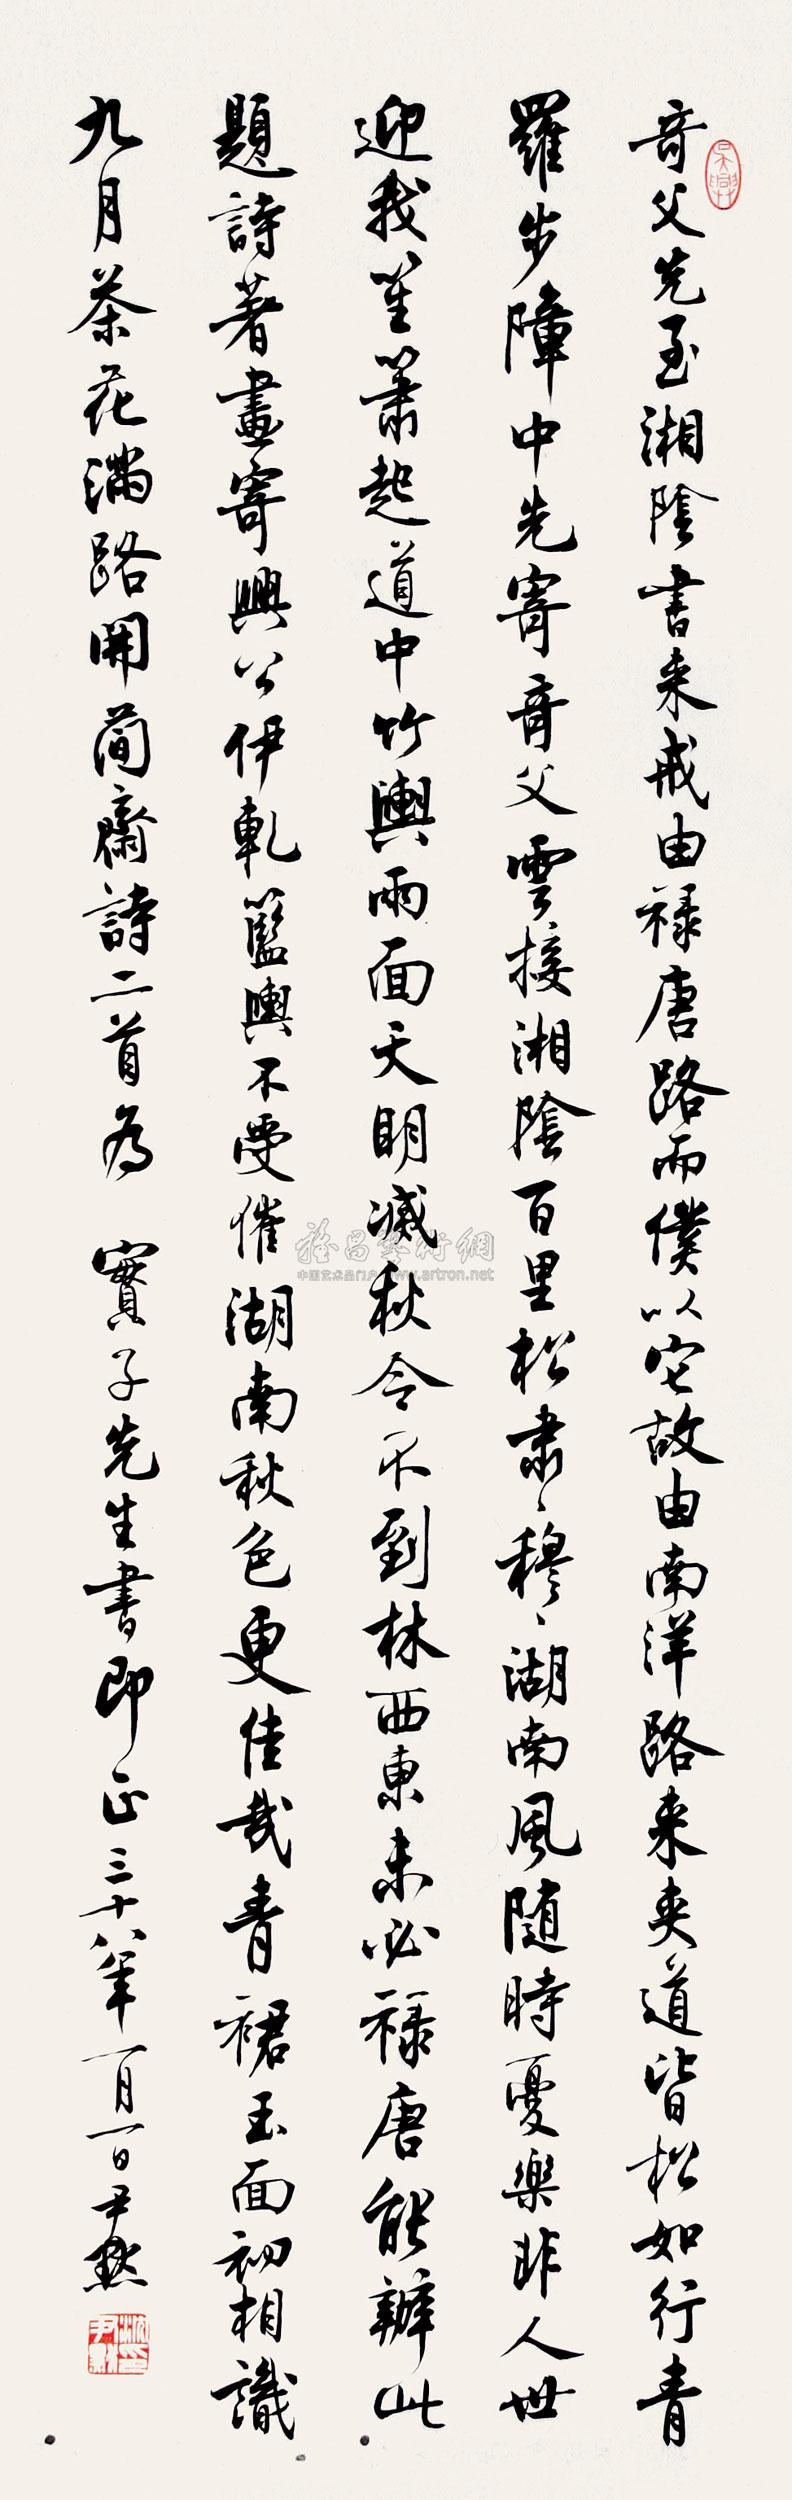 竒父先至湘陰書来戒由禄唐路而僕以它故由南洋路来夾道皆松如行青
羅步障中先寄竒父雲接湘陰百里松肅〻穆〻湖南風随時憂樂非人世
迎我笙簫起道中竹輿兩面天明滅秋令不到林西東未必禄唐能辦此
題詩著畫寄興公伊軋籃輿不受催湖南秋色更佳哉青裙玉面初相識
九月茶花滿路開簡齋詩二首為 實子先生書即正三十八年一月一日尹默
雅昌藝術網
中国艺术品门户 www.artron.net